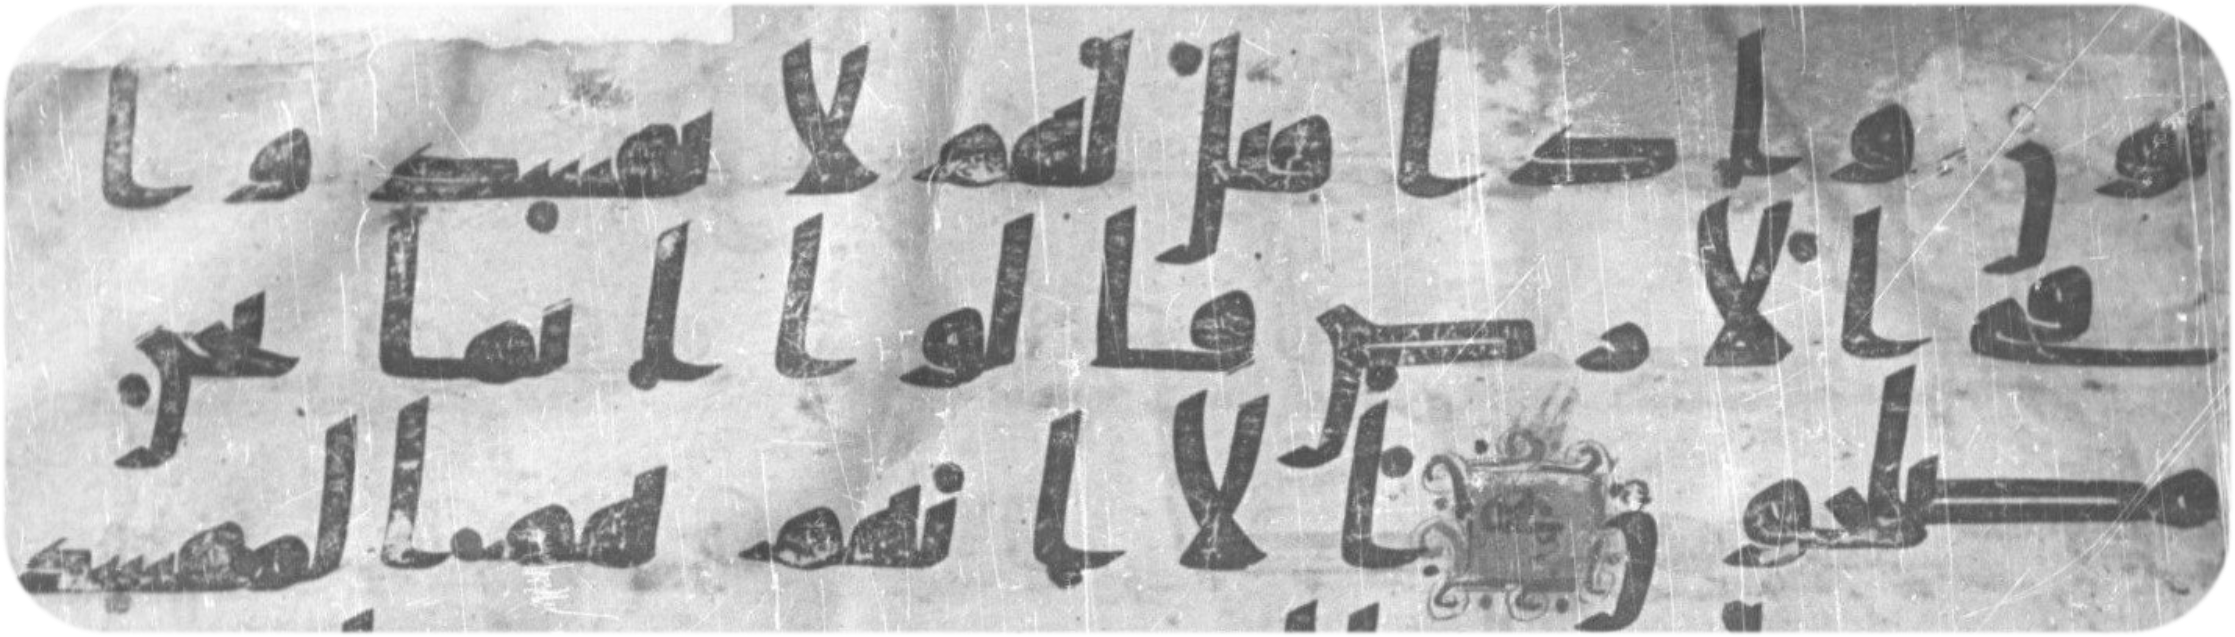 ون واذا قيل لهم لا تفسدوا
في الارض قالوا انما نحن
مصلحون الا انهم هم المفسد